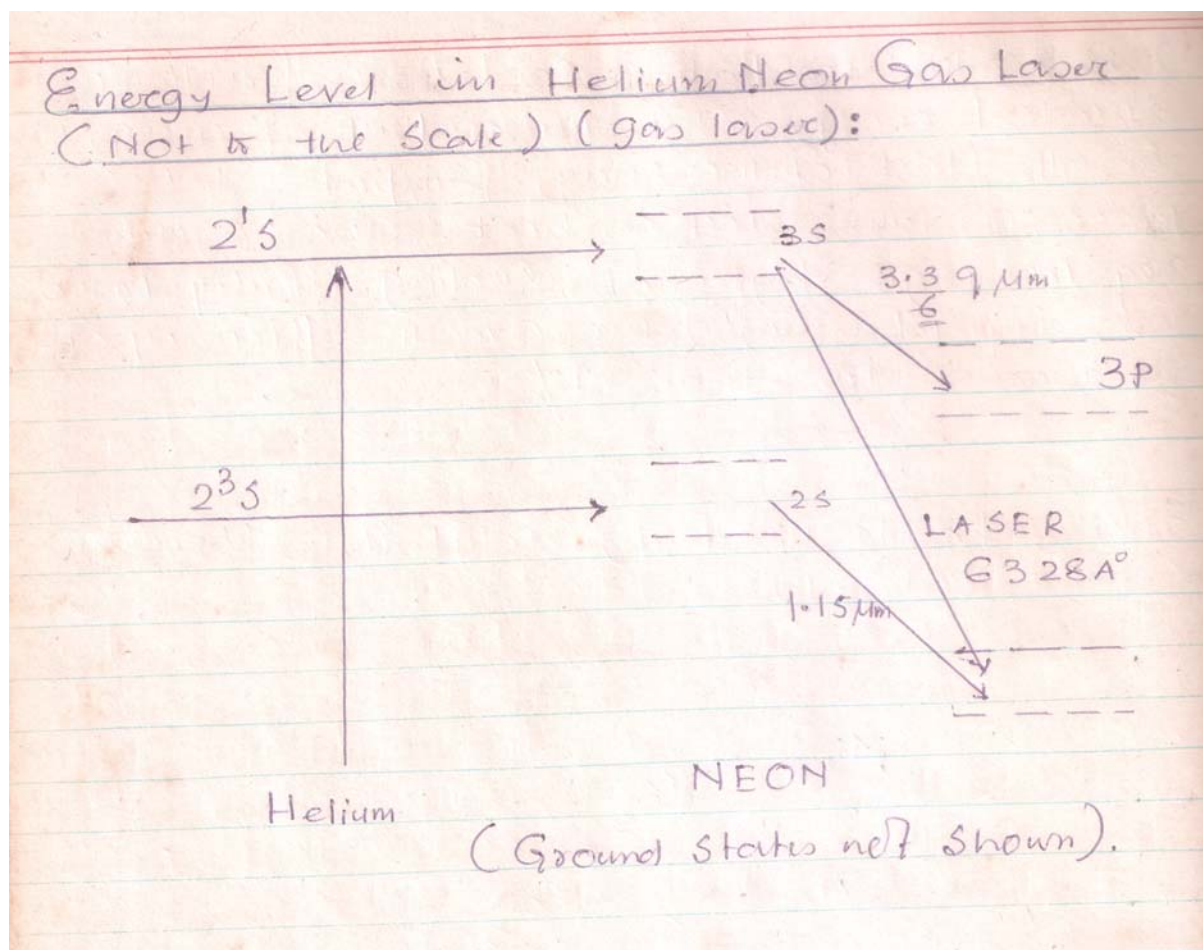 Energy Level in Helium Neon Gas Laser
(Not to the Scale) (gas laser):
2¹S
3S
3.39 μm
6
3P
2³S
2S
LASER
6328A°
1.15μm
NEON
Helium
(Ground states not shown).